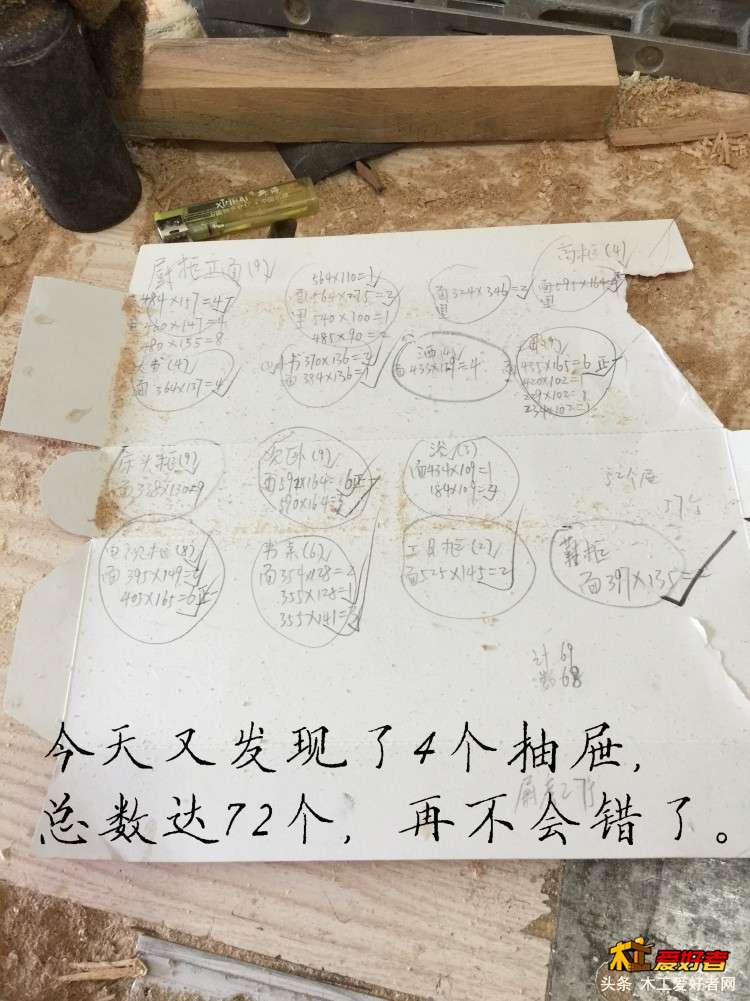 XINHAI
厨柜正面(9)
484×137=4
480×147=4
480×135=8
564×110=1
面564×275=2
里540×100=1
485×90=2
面324×346=2
里
高柜(4)
面595×164=4
里
大书(4)
面364×137=4
书370×136=3
面384×136=1
酒(4)
面433×129=4
435×165=6正一
420×102=1
229×102=1
234×102=1
床头柜(9)
面338×130=9
次卧(9)
面592×164=6正一
590×164=3
浴(5)
面434×109=1
184×109=4
52个屉
57个
电视柜(8)
面395×149=2
405×165=6正一
书桌(6)
面354×128=2
355×128=1
355×141=3
工具柜(2)
面525×145=2
鞋柜
面397×135=2
计69
68
今天又发现了4个抽屉，
总数达72个，再不会错了。
木工爱好者
头条 木工爱好者网